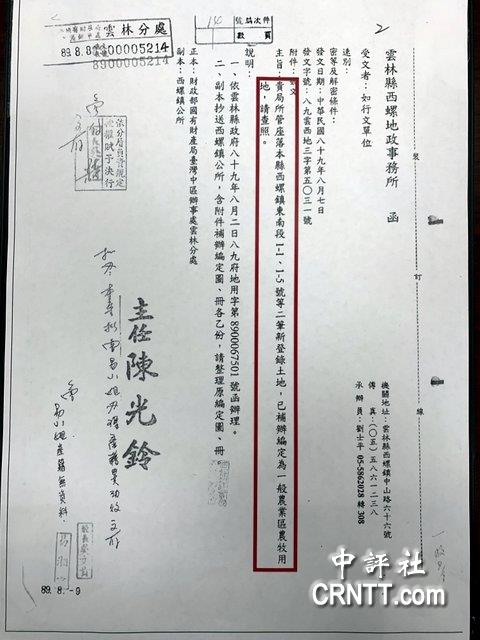 雲林縣西螺地政事務所　函
機關地址：雲林縣西螺鎮中山路六十六號
傳　真：(〇五)五八六一二三八
承辦員：劉士平 05-5862028轉308
受文者：如行文單位
速別：
密等及解密條件：
發文日期：中華民國八十九年八月七日
發文字號：八九雲西地三字第五〇三一號
附件：
主旨：貴局所管座落本縣西螺鎮東南段1-1、1-5號等二筆新登錄土地，已補辦編定為一般農業區農牧用
地，請查照。
說明：
一、依雲林縣政府八十九年八月二日八九府地用字第8900067501號函辦理。
二、副本抄送西螺鎮公所，含附件補辦編定圖、冊各乙份，請整理原編定圖、冊
正本：財政部國有財產局臺灣中區辦事處雲林分處
副本：西螺鎮公所
主任陳光鈴
雲林分處
89.8.8
8900005214
號編次件
數頁
裝
訂
線
89.8.-9
中評社
CRNTT.com